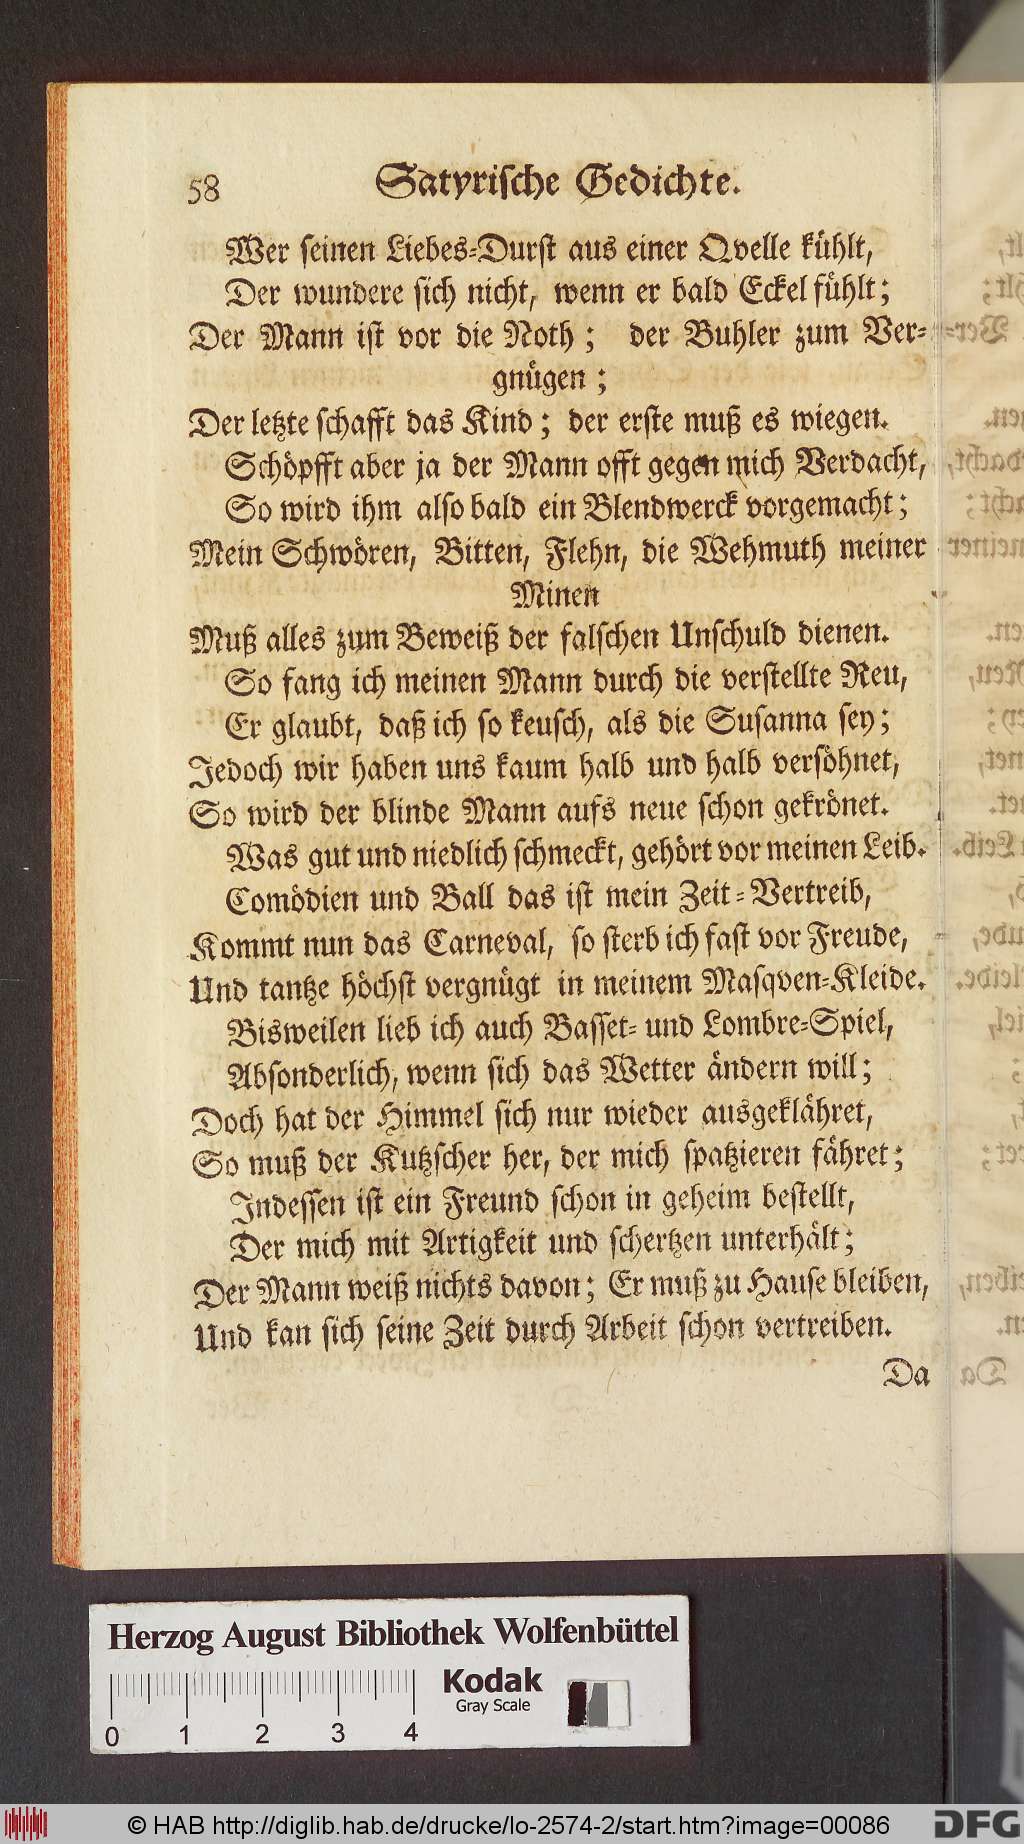 58 Satyrische Gedichte.
Wer seinen Liebes-Durst aus einer Qvelle kühlt,
Der wundere sich nicht, wenn er bald Eckel fühlt;
Der Mann ist vor die Noth; der Buhler zum Ver-
gnügen;
Der letzte schafft das Kind; der erste muß es wiegen.
Schöpfft aber ja der Mann offt gegen mich Verdacht,
So wird ihm also bald ein Blendwerck vorgemacht;
Mein Schwören, Bitten, Flehn, die Wehmuth meiner
Minen
Muß alles zum Beweiß der falschen Unschuld dienen.
So fang ich meinen Mann durch die verstellte Reu,
Er glaubt, daß ich so keusch, als die Susanna sey;
Jedoch wir haben uns kaum halb und halb versöhnet,
So wird der blinde Mann aufs neue schon gekrönet.
Was gut und niedlich schmeckt, gehört vor meinen Leib.
Comödien und Ball das ist mein Zeit-Vertreib,
Kommt nun das Carneval, so sterb ich fast vor Freude,
Und tantze höchst vergnügt in meinem Masqven-Kleide.
Bisweilen lieb ich auch Basset- und Lombre-Spiel,
Absonderlich, wenn sich das Wetter ändern will;
Doch hat der Himmel sich nur wieder ausgeklähret,
So muß der Kutzscher her, der mich spatzieren fähret;
Indessen ist ein Freund schon in geheim bestellt,
Der mich mit Artigkeit und schertzen unterhält;
Der Mann weiß nichts davon; Er muß zu Hause bleiben,
Und kan sich seine Zeit durch Arbeit schon vertreiben.
Da
Herzog August Bibliothek Wolfenbüttel
Kodak
Gray Scale
0 1 2 3 4
© HAB http://diglib.hab.de/drucke/lo-2574-2/start.htm?image=00086
DFG